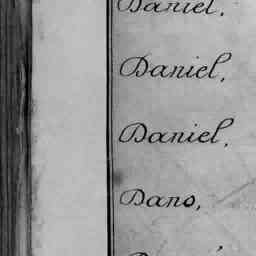 Daniel,
Daniel,
Daniel,
Dano,